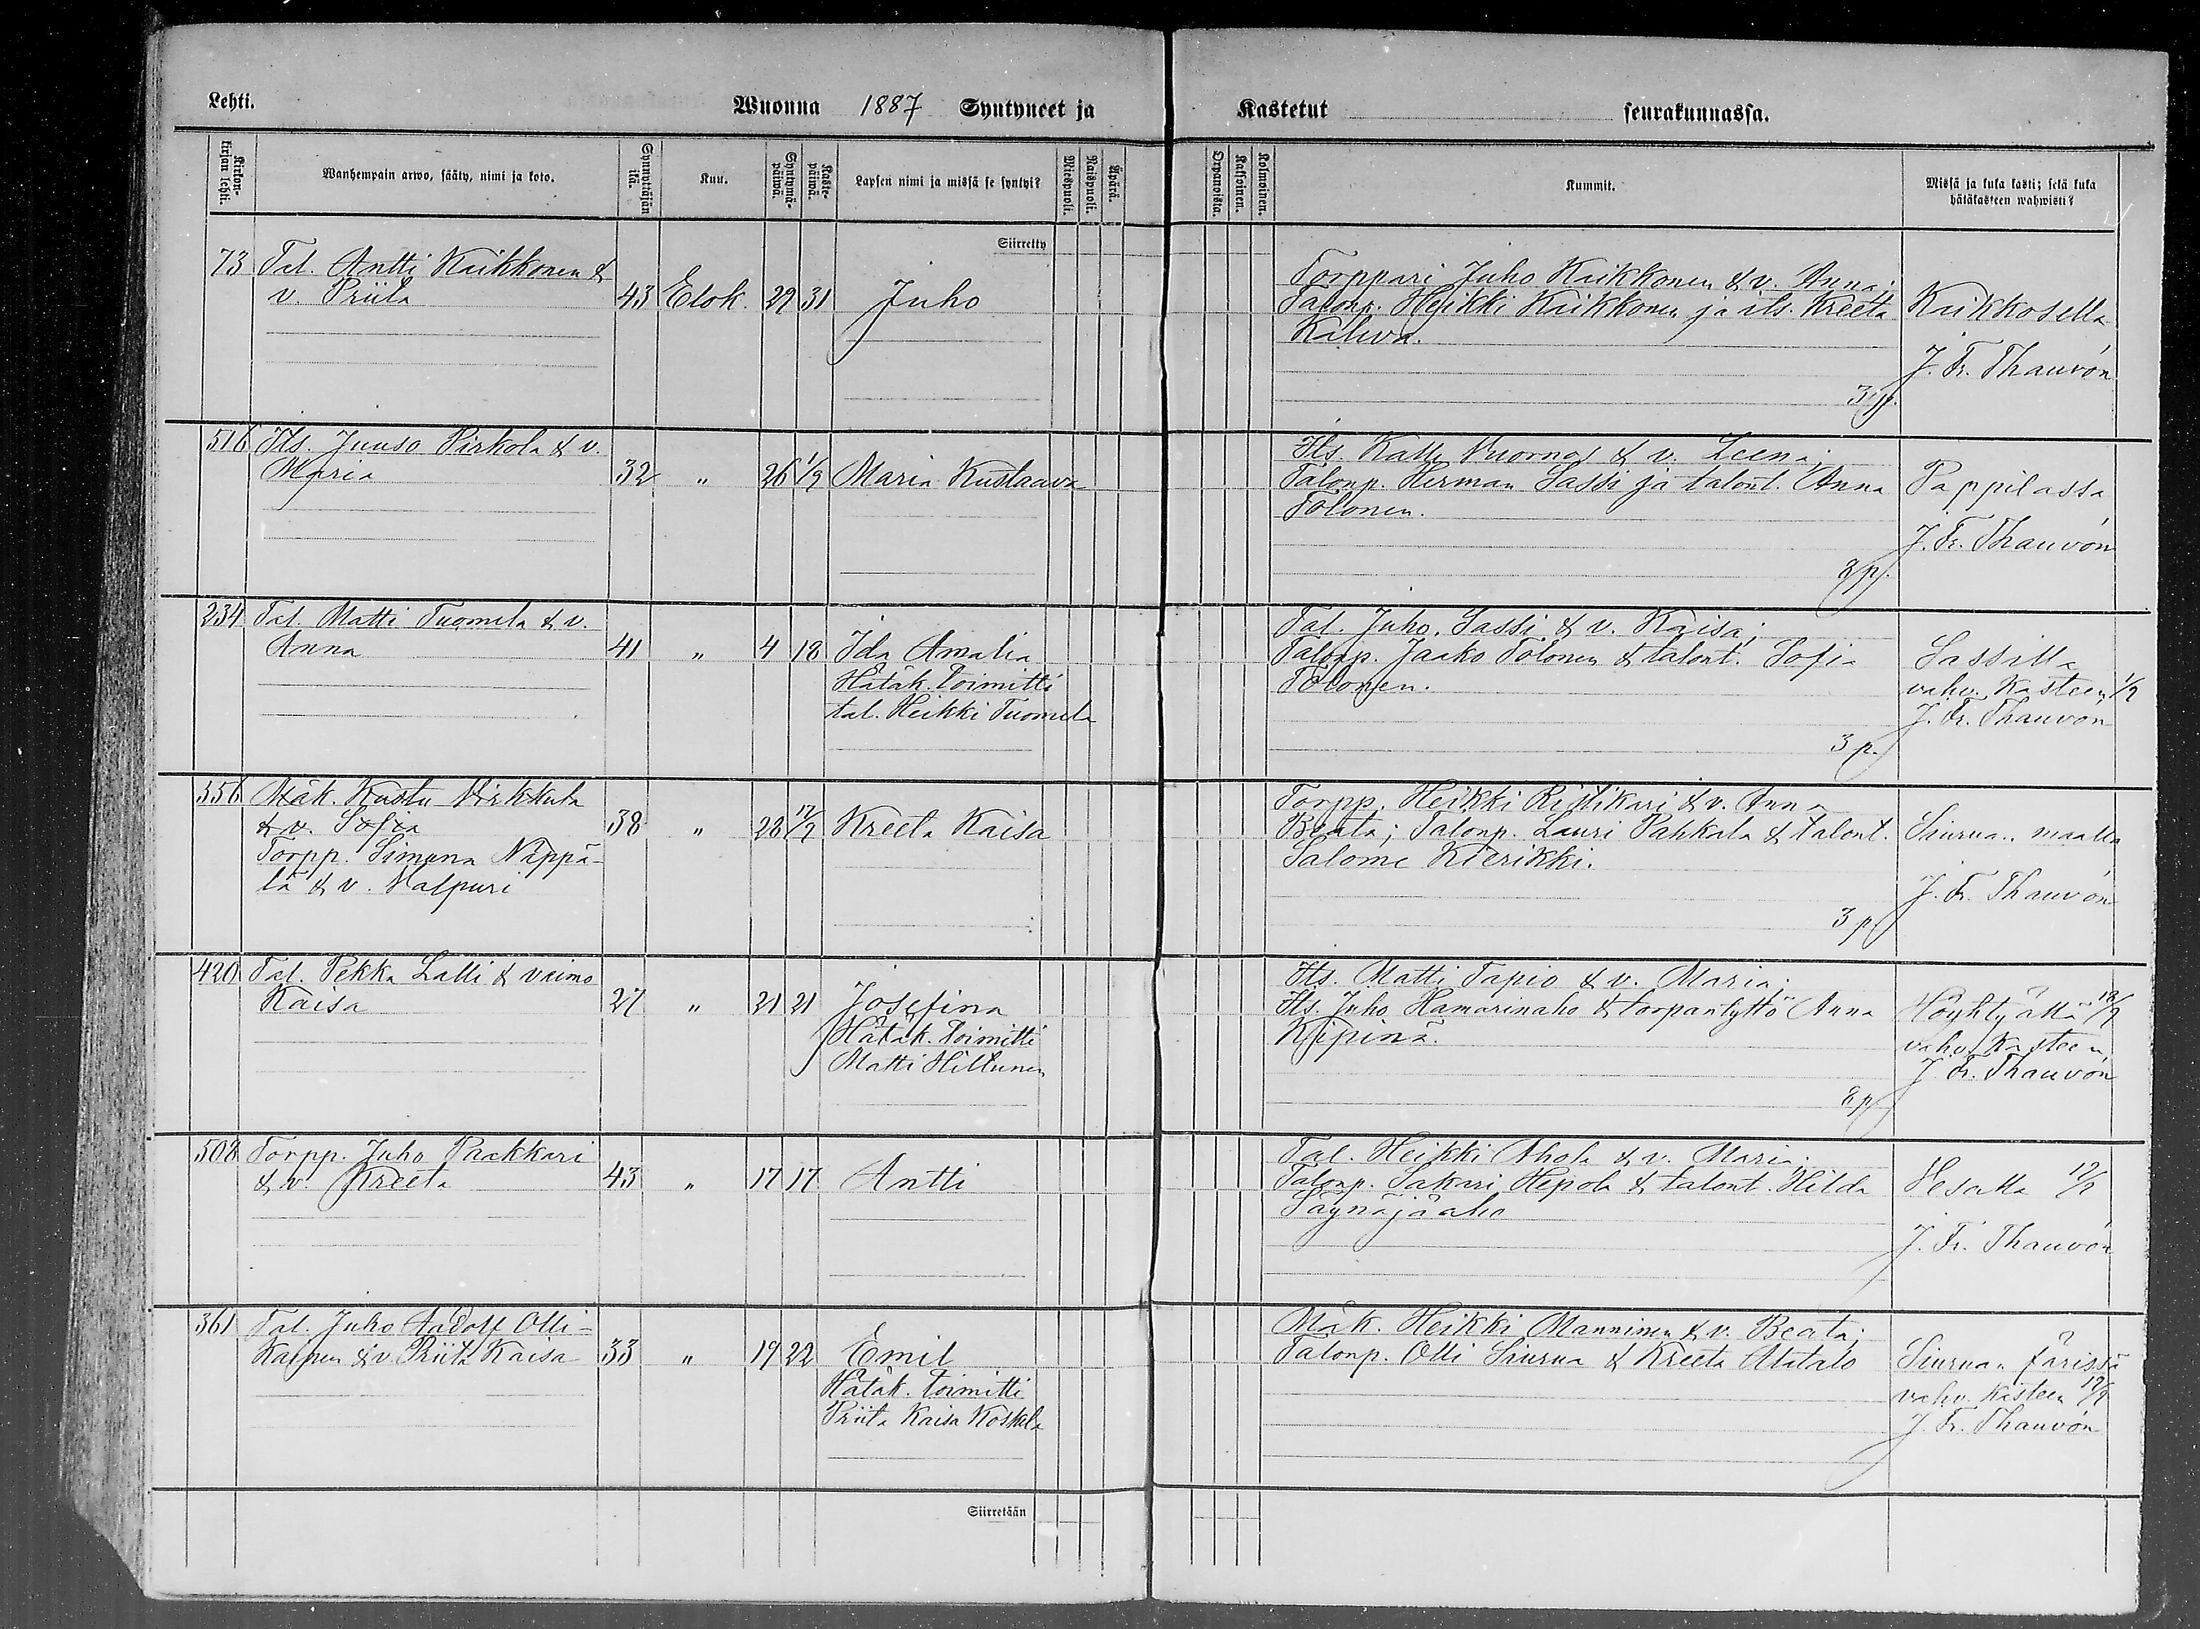 Lehti.
Wuonna 1887 Syntyneet ja
Kastetut seurakunnassa.
Wanhempain arwo, sääty, nimi ja koto.
Synnyttäjän ikä.
Kuu.
Syntymä-päiwä.
Kaste-päiwä.
Lapsen nimi ja missä se syntyi?
Miespuoli.
Naispuoli.
Äpärä.
Kaksoinen.
Kolmoinen.
Kummit.
Missä ja kuka kasti; sekä kuka
hätäkasteen wahwisti?
Siirretty
73 Tal. Antti Kaikkonen &
v. Priita 43 Elok. 29 31 Juho
Torppari Juho Kaikkonen & v. Anna;
Talonp. Heikki Kaikkonen ja its. Kreeta
Kaikkosella
J. Fr. Thauvón
3 p.
516 Its. Juuso Pirkola & v.
Maria 32 " 26 1/9 Maria Kustaava
Its. Kalle Vuorna & v. Leena;
Talonp. Herman Sassi ja talont. Anna
Tolonen.
Pappilassa
J. Fr. Thauvón
234 Tal. Matti Tuomela & v.
Anna 41 " 4 18 Ida Amalia
Hätäk. toimitti
tal. Heikki Tuomela
Tal. Juho Sassi & v. Kaisa;
Talonp. Jaako Tolonen & talont. Sofia
Tolonen.
Sassilla
vahv. Kasteen 1/9
J. Fr. Thauvón
3 p.
356 Mäk. Kustu Virkkula
& v. Sofia 38 " 28 Kreeta Kaisa
Torpp. Simuna Näppä-
lä & v. Valpuri
Torpp. Heikki Ristikari & v. Anna
Beata; Talonp. Lauri Pahkala & talont.
Salome Kierikki.
Siurua.. maalla
J. Fr. Thauvón
3 p
420 Tal. Pekka Lalli & vaimo
Kaisa 27 " 21 21 Josefina
Hätäk. toimitti
Matti Hiltunen
Its. Matti Tapio & v. Maria;
Its. Juho Hamarinaho & torpantyttö Anna
Kipinä.
vahv. Kasteen
J. Fr. Thauvón
508 Torpp. Juho Paakkari
& v. Kreeta 43 " 17 17 Antti
Tal. Heikki Ahola & v. Maria;
Talonp. Sakari Hepola & talont. Hilda
Säynäjäaho
J. Fr. Thauvón
361 Tal. Juho Aadolf Olli-
Kainen & v. Priita Kaisa 33 " 19 22 Emil
Hätäk. toimitti
Priita Kaisa Koskela
Mäk. Heikki Manninen & v. Beata;
Talonp. Olli Siurua & Kreeta Alatalo
vahv. Kasteen
J. Fr. Thauvón
Siirretään